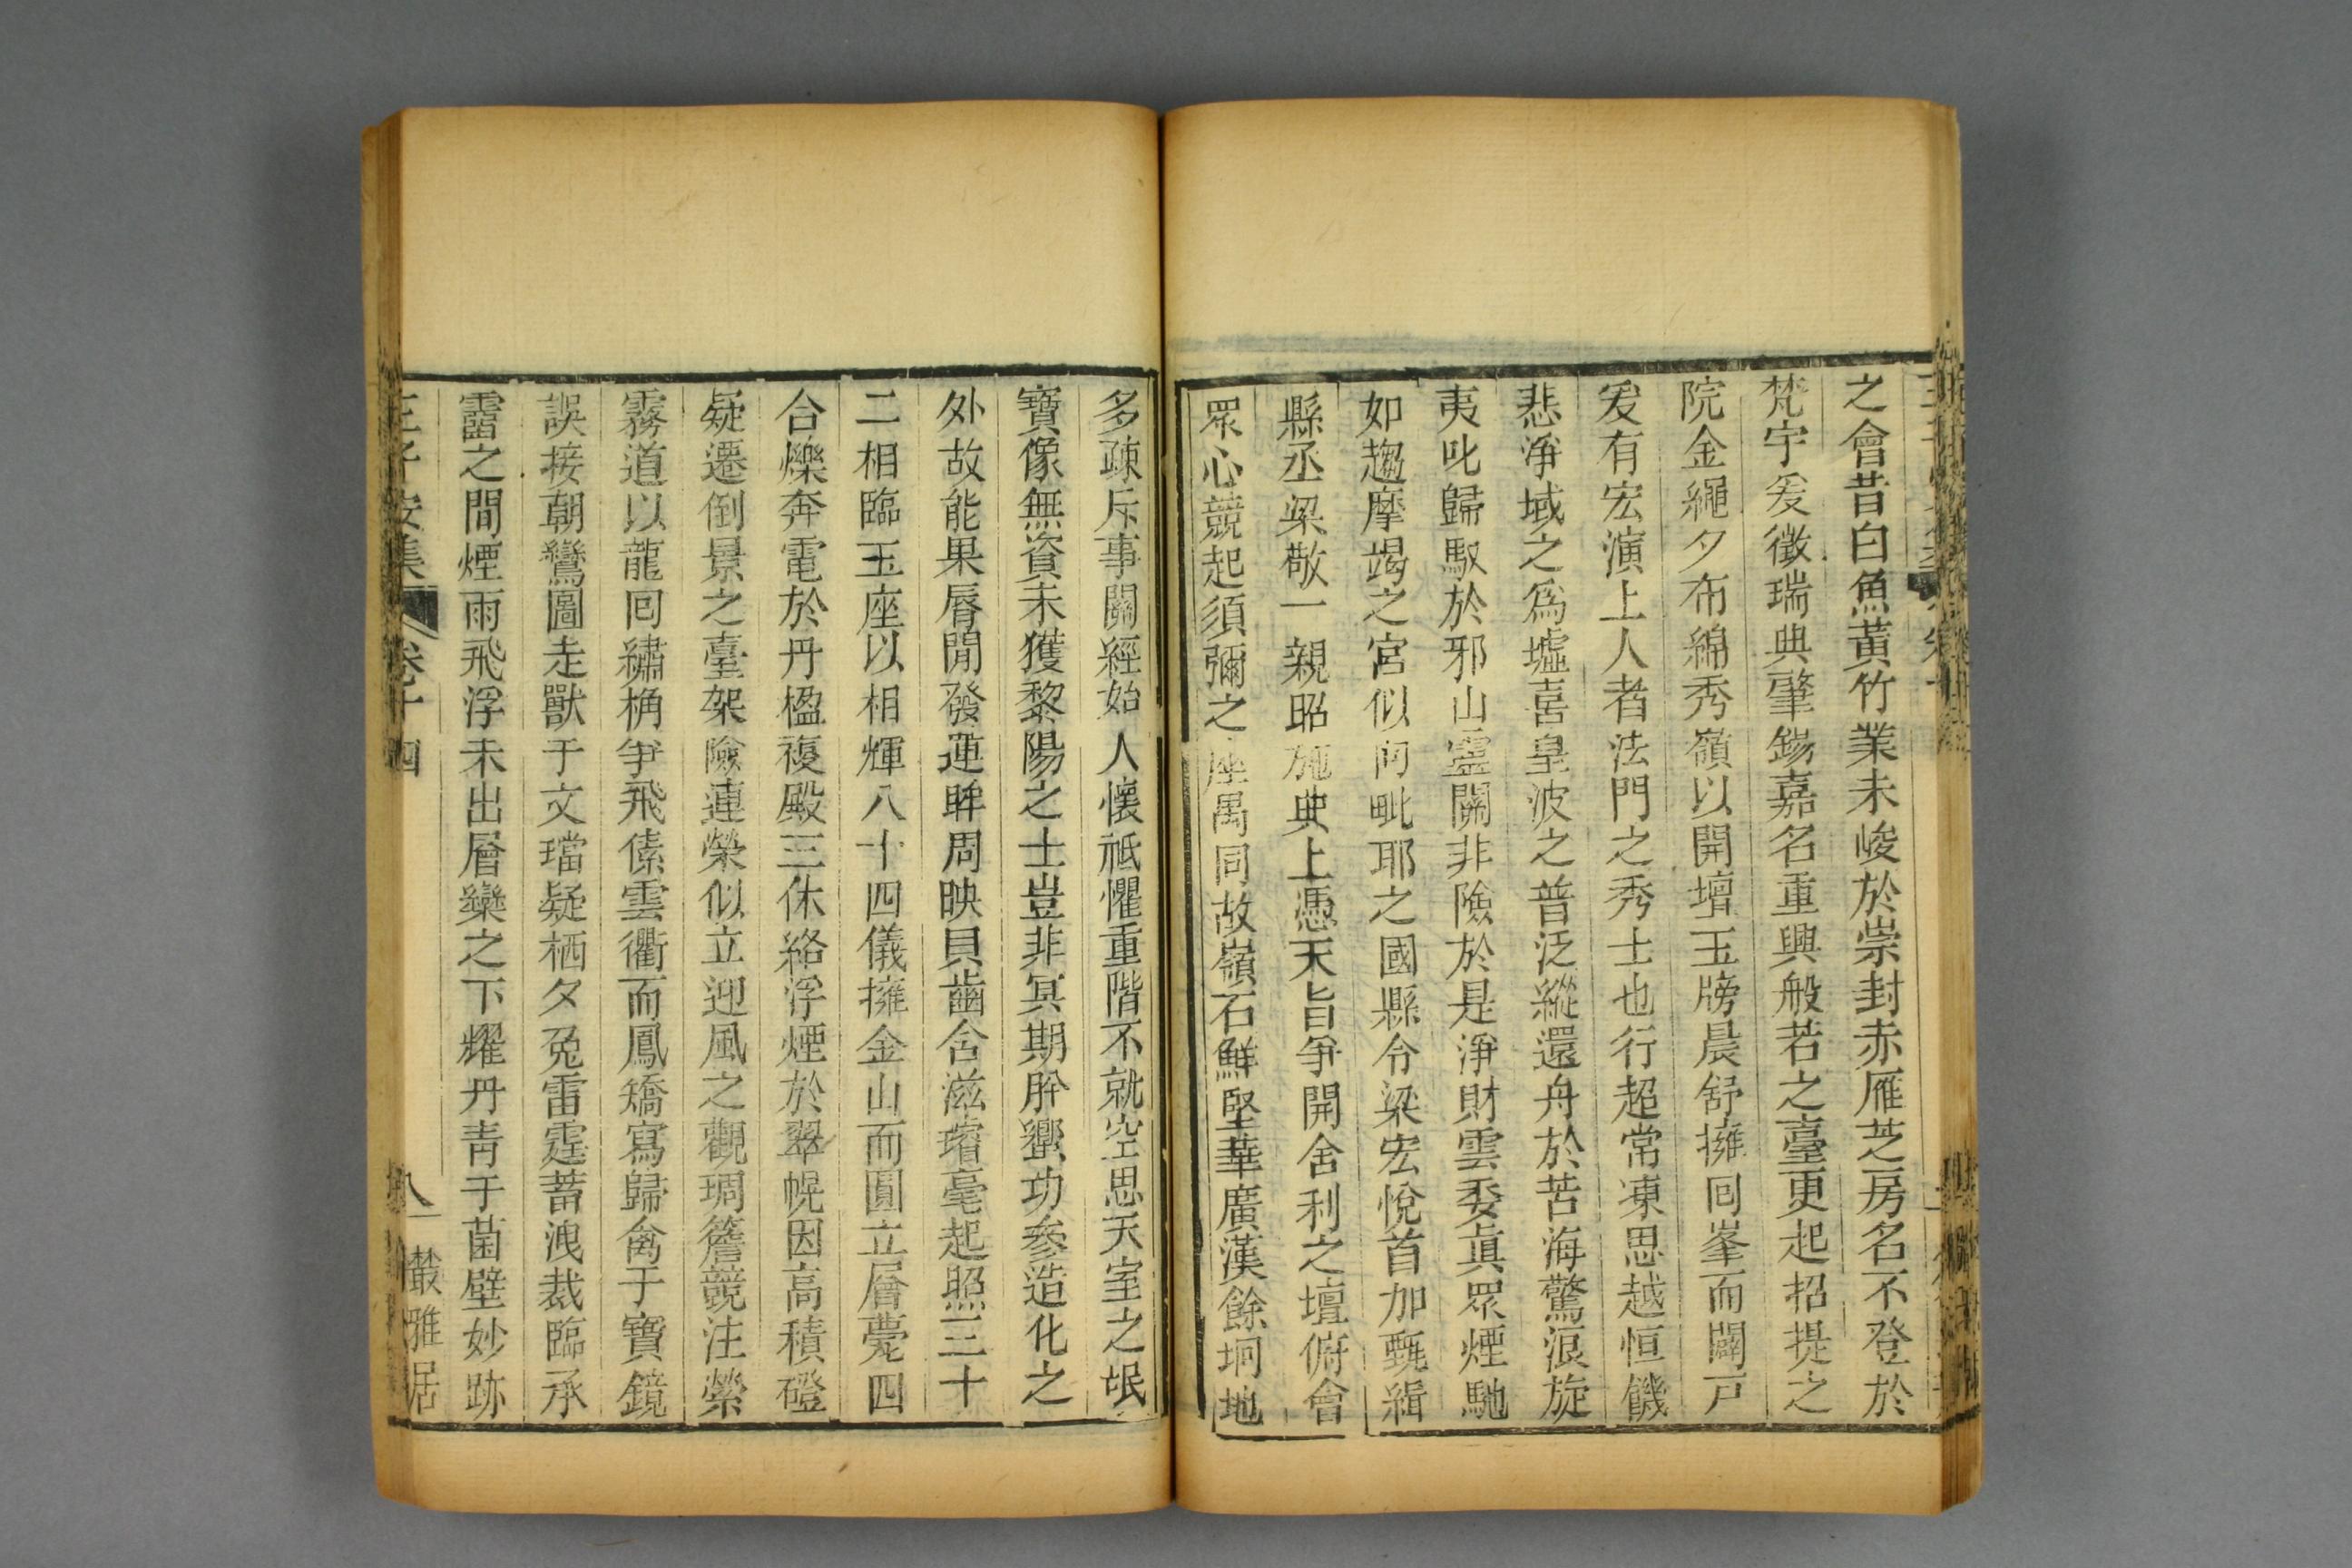 之會昔白魚黃竹業未峻於崇封赤雁芝房名不登於
梵宇爰徵瑞典肇錫嘉名重興般若之臺更起招提之
院金繩夕布綿秀嶺以開壇玉牓晨舒擁囘峯而闢戸
爰有宏演上人者法門之秀士也行超常凍思越恒饑
悲淨域之爲墟喜皇波之普泛縱還舟於苦海驚浪旋
夷叱歸馭於邪山靈關非險於是淨財雲委眞眾煙馳
如趨摩竭之宮似向毗耶之國縣令梁宏悅首加甄緝
縣丞梁敬一親昭施典上憑天旨爭開舍利之壇俯會
眾心競起須彌之座禺同故嶺石鮮堅華廣漢餘坰地
多疎斥事關經始人懷祗懼重階不就空思天室之氓
寶像無資未獲黎陽之士豈非冥期肸蠁功參造化之
外故能果脣開發蓮眸周映貝齒含滋璿毫起照三十
二相臨玉座以相輝八十四儀擁金山而圓立層甍四
合爍奔電於丹楹複殿三休絡浮煙於翠幌因高積磴
疑遷倒景之臺架險連榮似立迎風之觀琱簷競注縈
霧道以龍囘繡桷爭飛傃雲衢而鳳矯寫歸禽于寶鏡
誤接朝鸞圖走獸于文璫疑栖夕兔雷霆蓄洩裁臨承
霤之間煙雨飛浮未出層欒之下耀丹青于菌壁妙跡
王子安集 卷十四 八 叢雅居